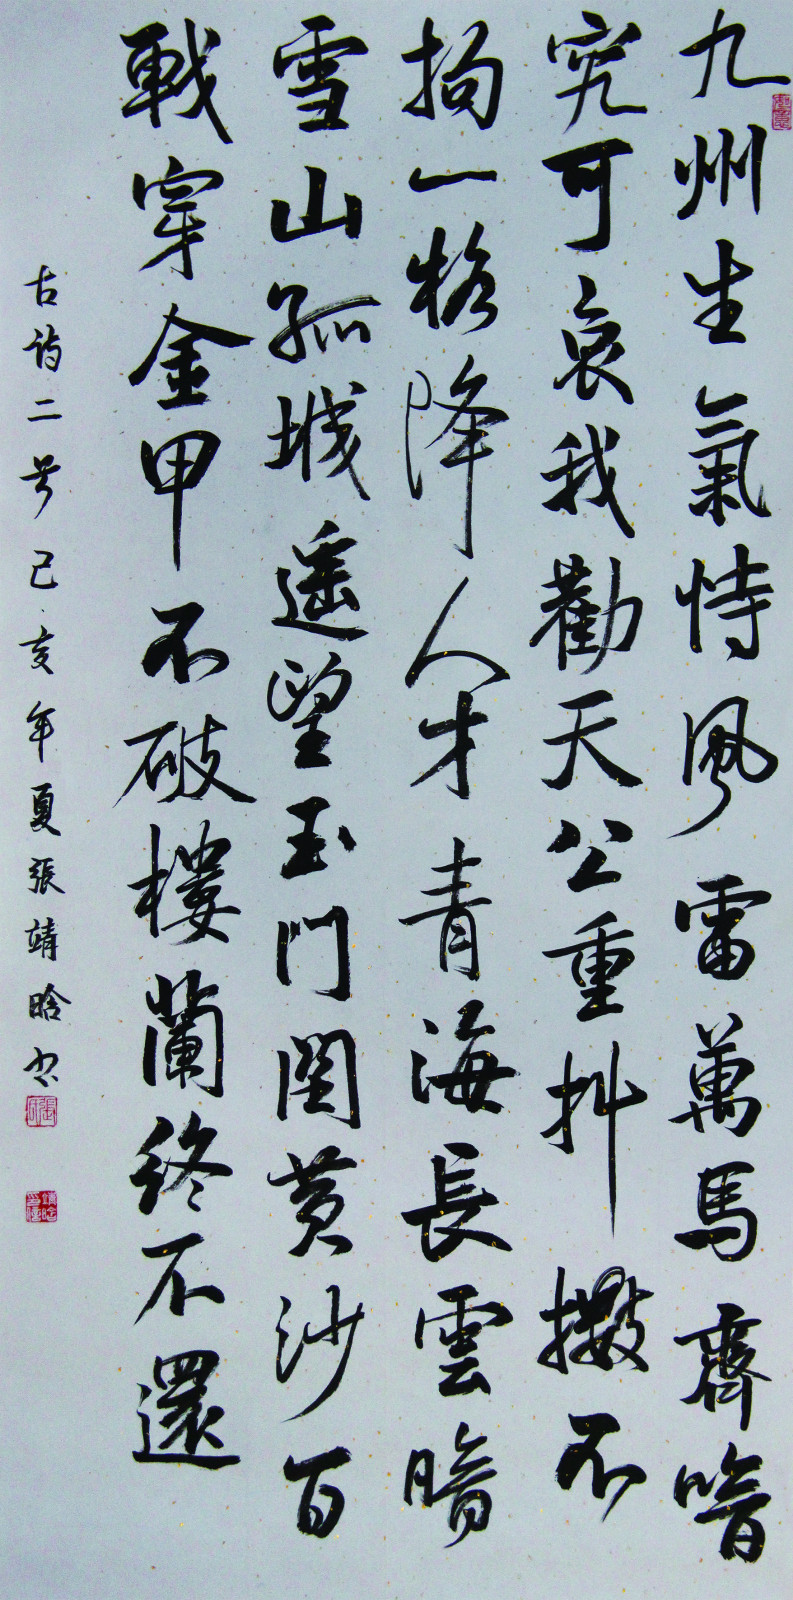 九州生氣恃風雷萬馬齊喑
究可哀我勸天公重抖擻不
拘一格降人才青海長雲暗
雪山孤城遥望玉門関黄沙百
戰穿金甲不破樓蘭終不還
古詩二首己亥年夏張靖晗书